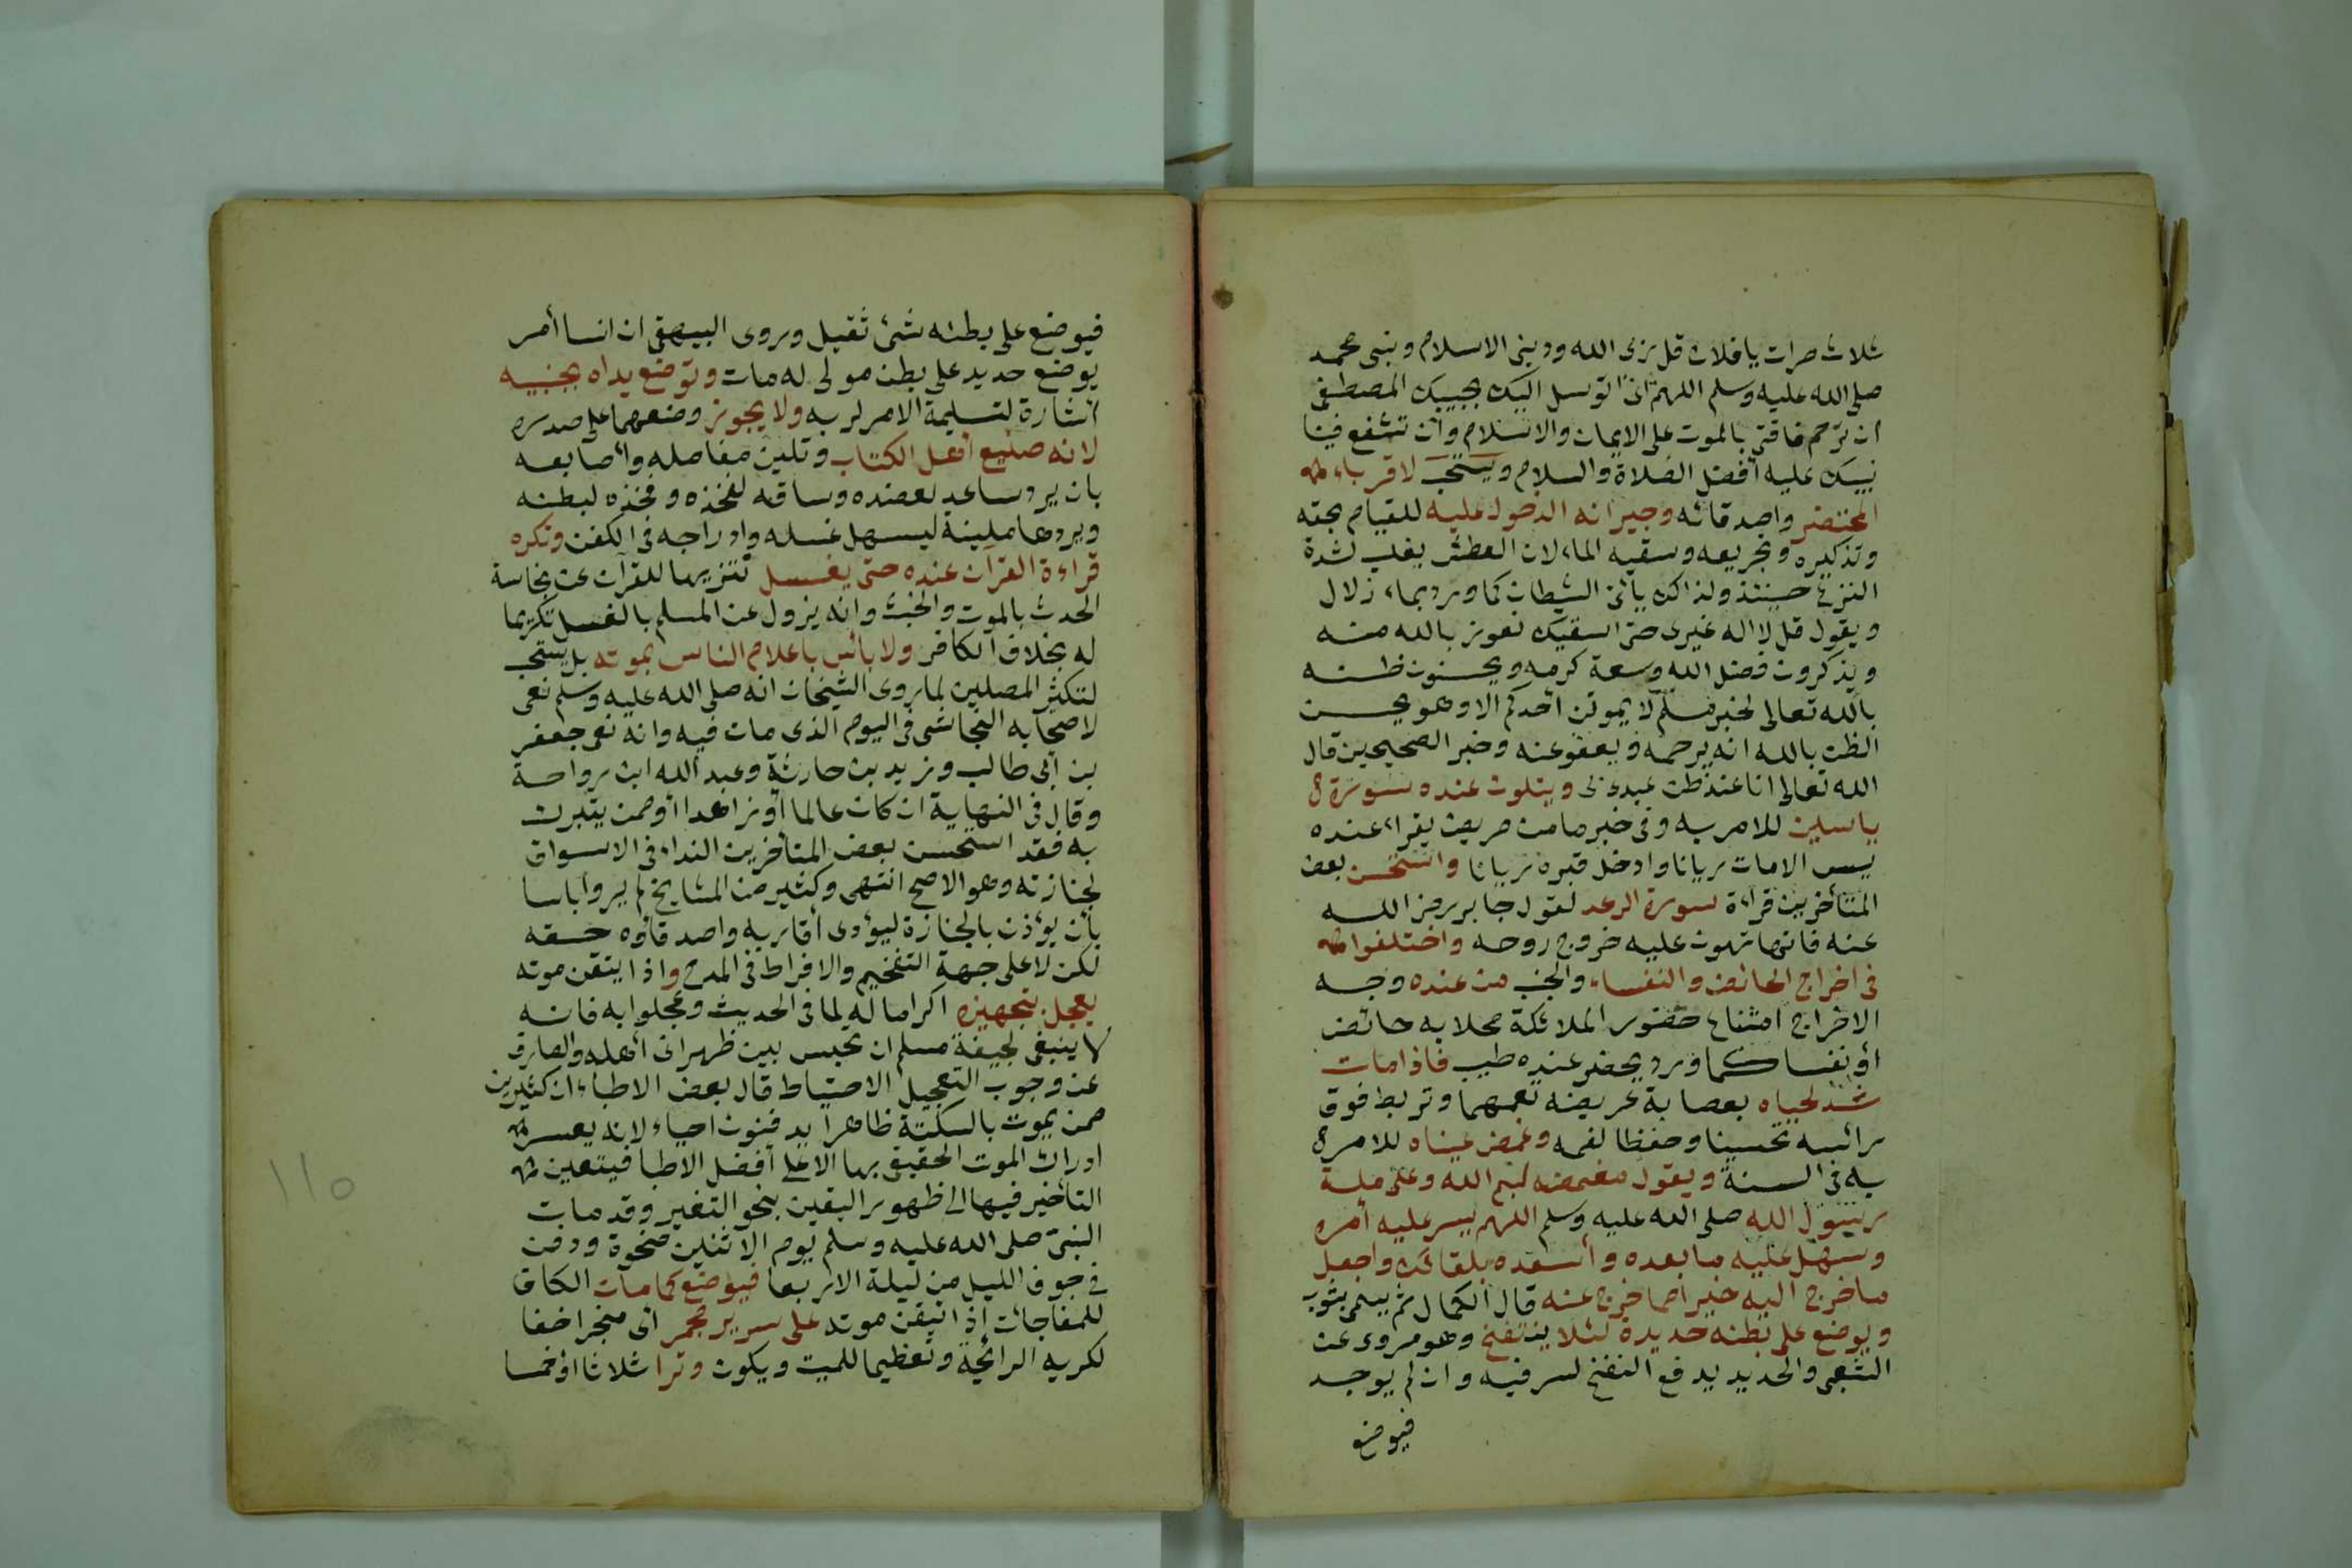 ثلاث مرات يا فلان قل ربى الله ودينى الاسلام ونبى محمد
صلى الله عليه وسلم اللهم انى اتوسل اليك بحبيبك المصطفى
ان ترحم فاقتى بالموت على الايمان والاسلام وان تشفع فينا
نبيك عليه أفضل الصلاة والسلام ويستحب لاقرباء
المحتضر واصدقائه وجيرانه الدخول عليه للقيام بحقه
وتذكيره وتجريعه وسقيه الماء لان العطش يغلب لشدة
النزع حينئذ ولذالك يأتى الشيطان كما ورد بماء زلال
ويقول قل لا اله غيرى حتى اسقيك نعوذ بالله منه
ويذكرون فضل الله وسعة كرمه ويحسنون ظنه
بالله تعالى لخبر مسلم لا يموتن أحدكم الا وهو يحسن
الظن بالله انه يرحمه ويعفو عنه وخبر الصحيحين قال
الله تعالى انا عند ظن عبدى بى ويتلون عنده سورة
ياسين للامر به وفى خبر ما من مريض يقراء عنده
يس الامات ريانا وادخل قبره ريانا واستحسن بعض
المتأخرين قراءة سورة الرعد لقول جابر رضى الله
عنه فانها تهون عليه خروج روحه واختلفوا
فى اخراج الحائض والنفساء والجنب من عنده وجه
الاخراج امتناع حضور الملائكة محلا به حائض
أو نفسا كما ورد يحضر عنده طيب فاذا مات
شد لحياه بعصابة عريضة تعمهما وتربط فوق
رائسه تحسينا وحفظا لفمه وغمض عيناه للامر
به فى السنة ويقول مغمضه بسم الله وعلى ملة
رسول الله صلى الله عليه وسلم اللهم يسر عليه أمره
وسهل عليه ما بعده وأسعده بلقائك واجعل
ما خرج اليه خيرا مما خرج عنه قال الكمال ثم يسجى بثوب
ويوضع على بطنه حديدة لئلا ينتفخ وهو مروى عن
الشعبى والحديد يدفع النفخ لسر فيه وان لم يوجد
فيوضع
فيوضع على بطنه شئ ثقيل وروى البيهقى ان انسا أمر
يوضع حديد على بطن مولى له مات وتوضع يداه بجنبيه
اشارة لتسليمة الامر لربه ولا يجوز وضعهما على صدره
لانه صنيع أهل الكتاب وتلين مفاصله وأصابعه
بان يرد ساعد لعضده وساقه لفخذه وفخذه لبطنه
ويردها ملينة ليسهل غسله وادراجه فى الكفن وتكره
قراءة القرآن عنده حتى يغسل تنزيها للقرآن عن نجاسة
الحدث بالموت والخبث وانه يزول عن المسلم بالغسل تكريما
له بخلاف الكافر ولا بائس باعلام الناس بموته بل يستحب
لتكثر المصلين لما روى الشيخان انه صلى الله عليه وسلم نعى
لاصحابه النجاشى فى اليوم الذى مات فيه وانه نعى جعفر
بن أبى طالب وزيد بن حارثة وعبد الله ابن رواحة
وقال فى النهاية ان كان عالما أو زاهدا أو ممن يتبرك
به فقد استحسن بعض المتأخرين النداء فى الاسواق
لجنازته وهو الاصح انتهى وكثير من المشايخ لم يروا باسا
بأن يؤذن بالجنازة ليؤدى أقاربه واصدقاؤه حقه
لكن لا على جهة التفخيم والافراط فى المدح واذا يتقن موته
يعجل بتجهيزه اكراما له لما فى الحديث وعجلوا به فانه
لا ينبغى لجيفة مسلم ان تحبس بين ظهرانى أهله والصارف
عن وجوب التعجيل الاحتياط قال بعض الاطباء ان كثيرين
ممن يموت بالسكتة ظاهرا يدفنون احياء لانه يعسر
ادراك الموت الحقيقى بها الا على أفضل الاطبا فيتعين
التاخير فيها الى ظهور اليقين بنحو التغير وقد مات
النبى صلى الله عليه وسلم يوم الاثنين ضحوة ودفن
فى جوف الليل من ليلة الاربعا فيوضع كما مات الكاف
للمفاجات إذا تيقن موته على سرير مجمر أى مبخر اخفا
لكريه الرائحة وتعظيما للميت ويكون وترا ثلاثا أو خمسا
١١٥